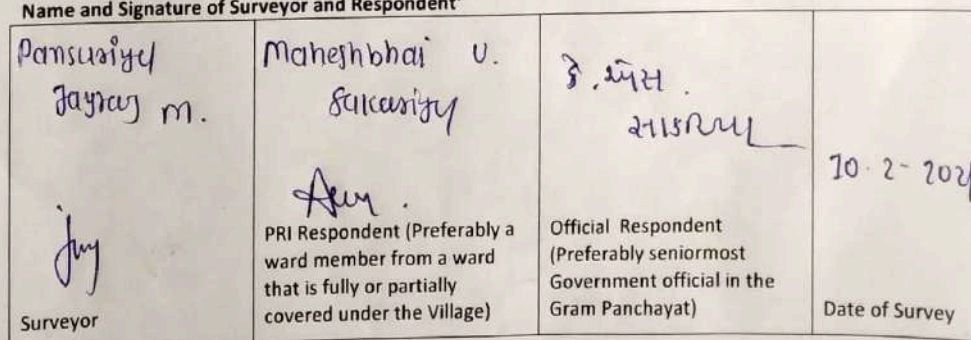 Name and Signature of Surveyor and Respondent
Pansuriya
Jayraj M.
Surveyor
Maheshbhai V.
Sakariya
PRI Respondent (Preferably a
ward member from a ward
that is fully or partially
covered under the Village)
કે. એસ.
સાકરિયા
Official Respondent
(Preferably seniormost
Government official in the
Gram Panchayat)
10-2-202
Date of Survey